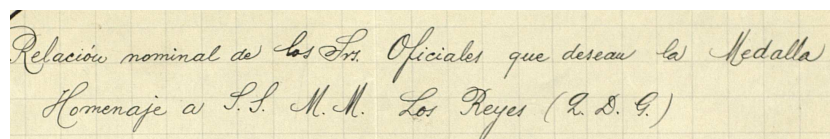 Relación nominal de los Srs. Oficiales que desean la Medalla
Homenaje a S.S. M.M. Los Reyes (Q. D. G.)